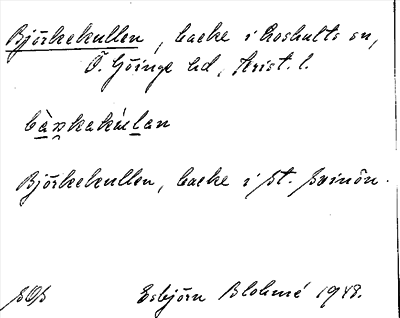 Björkekullen, backe i Loshults sn,
Ö. Göinge hd, Krist. l.
Björkekullen, backe i St. Svinön.
Esbjörn Blohmé 1948.